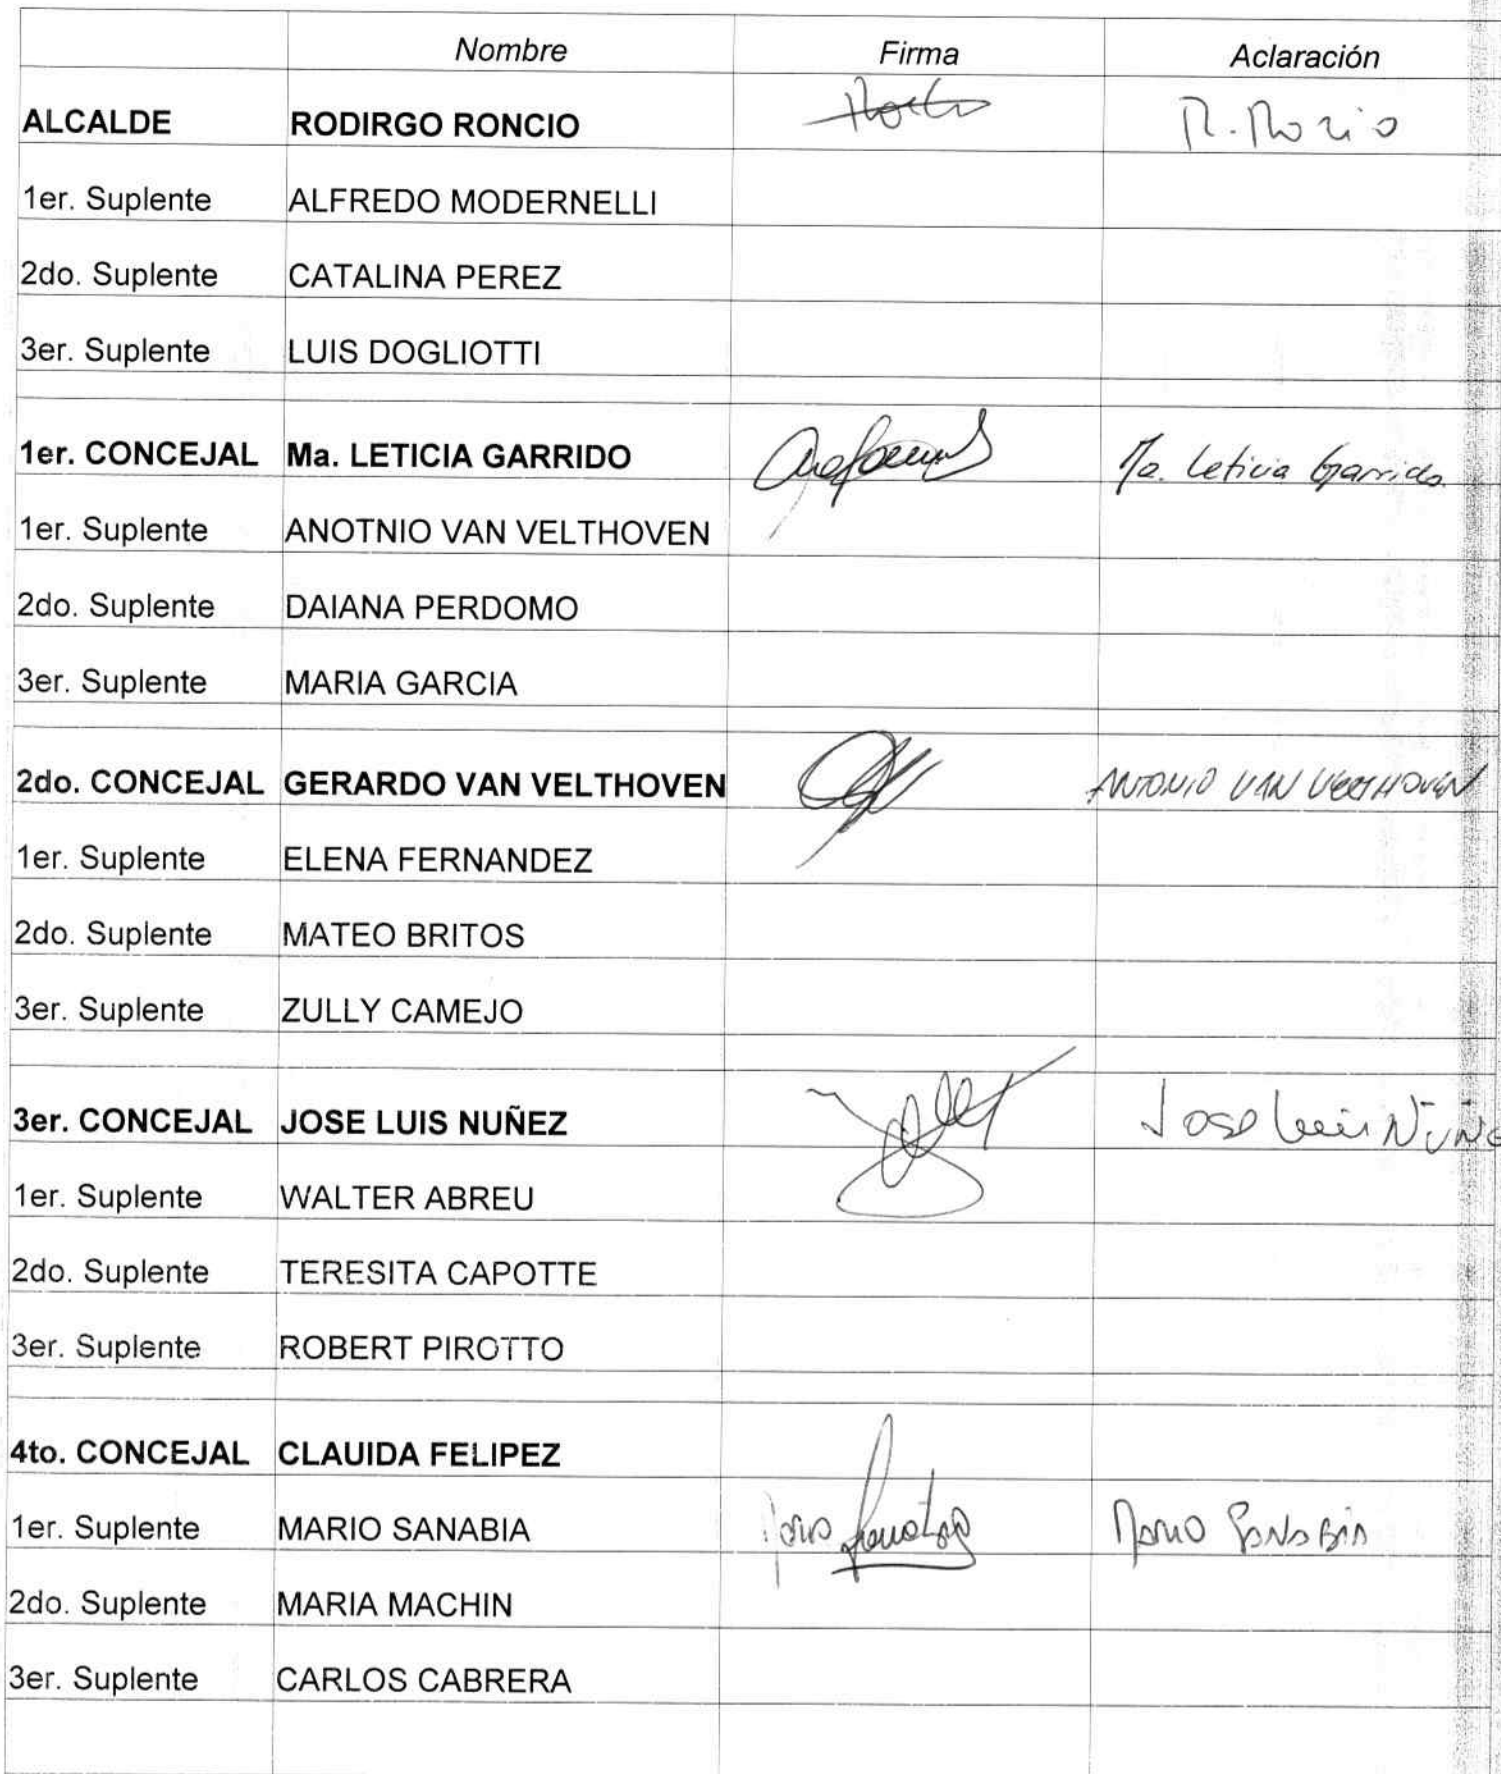 Nombre Firma Aclaración
ALCALDE RODIRGO RONCIO
1er. Suplente ALFREDO MODERNELLI
2do. Suplente CATALINA PEREZ
3er. Suplente LUIS DOGLIOTTI
1er. CONCEJAL Ma. LETICIA GARRIDO Ma. Leticia Garrido.
1er. Suplente ANOTNIO VAN VELTHOVEN
2do. Suplente DAIANA PERDOMO
3er. Suplente MARIA GARCIA
2do. CONCEJAL GERARDO VAN VELTHOVEN ANTONIO VAN VELTHOVEN
1er. Suplente ELENA FERNANDEZ
2do. Suplente MATEO BRITOS
3er. Suplente ZULLY CAMEJO
3er. CONCEJAL JOSE LUIS NUÑEZ Jose Luis
1er. Suplente WALTER ABREU
2do. Suplente TERESITA CAPOTTE
3er. Suplente ROBERT PIROTTO
4to. CONCEJAL CLAUIDA FELIPEZ
1er. Suplente MARIO SANABIA MARIO SANABIA
2do. Suplente MARIA MACHIN
3er. Suplente CARLOS CABRERA